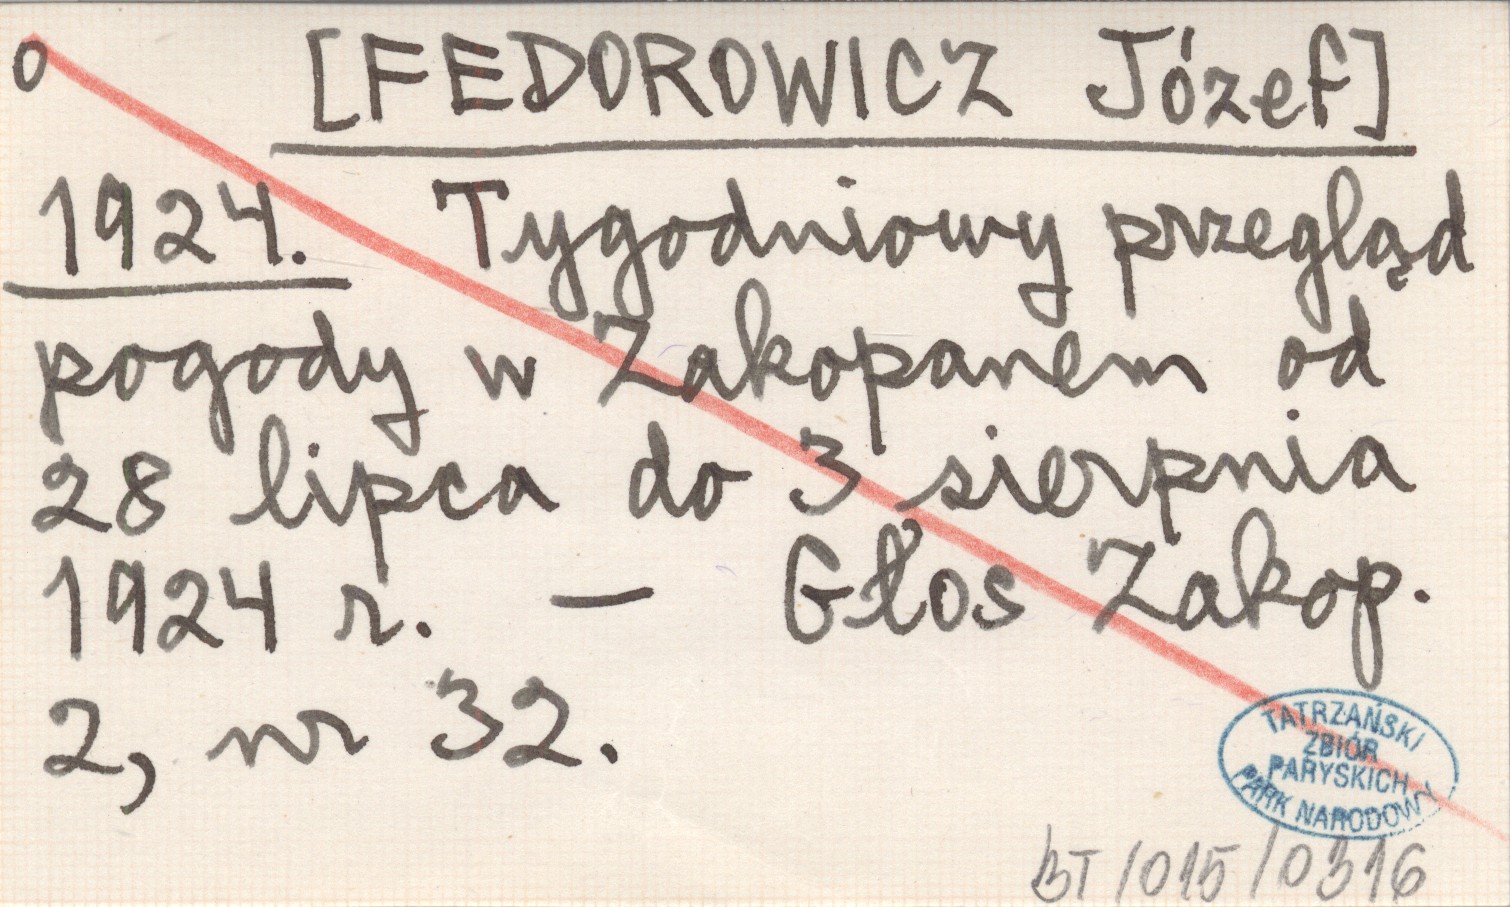 o [FEDOROWICZ Józef]
1924. Tygodniowy przegląd
pogody w Zakopanem od
28 lipca do 3 sierpnia
1924 r. — Głos Zakop.
2, nr 32.
TATRZAŃSKI
ZBIÓR
PARYSKICH
PARK NARODOWY
BT/015/0316